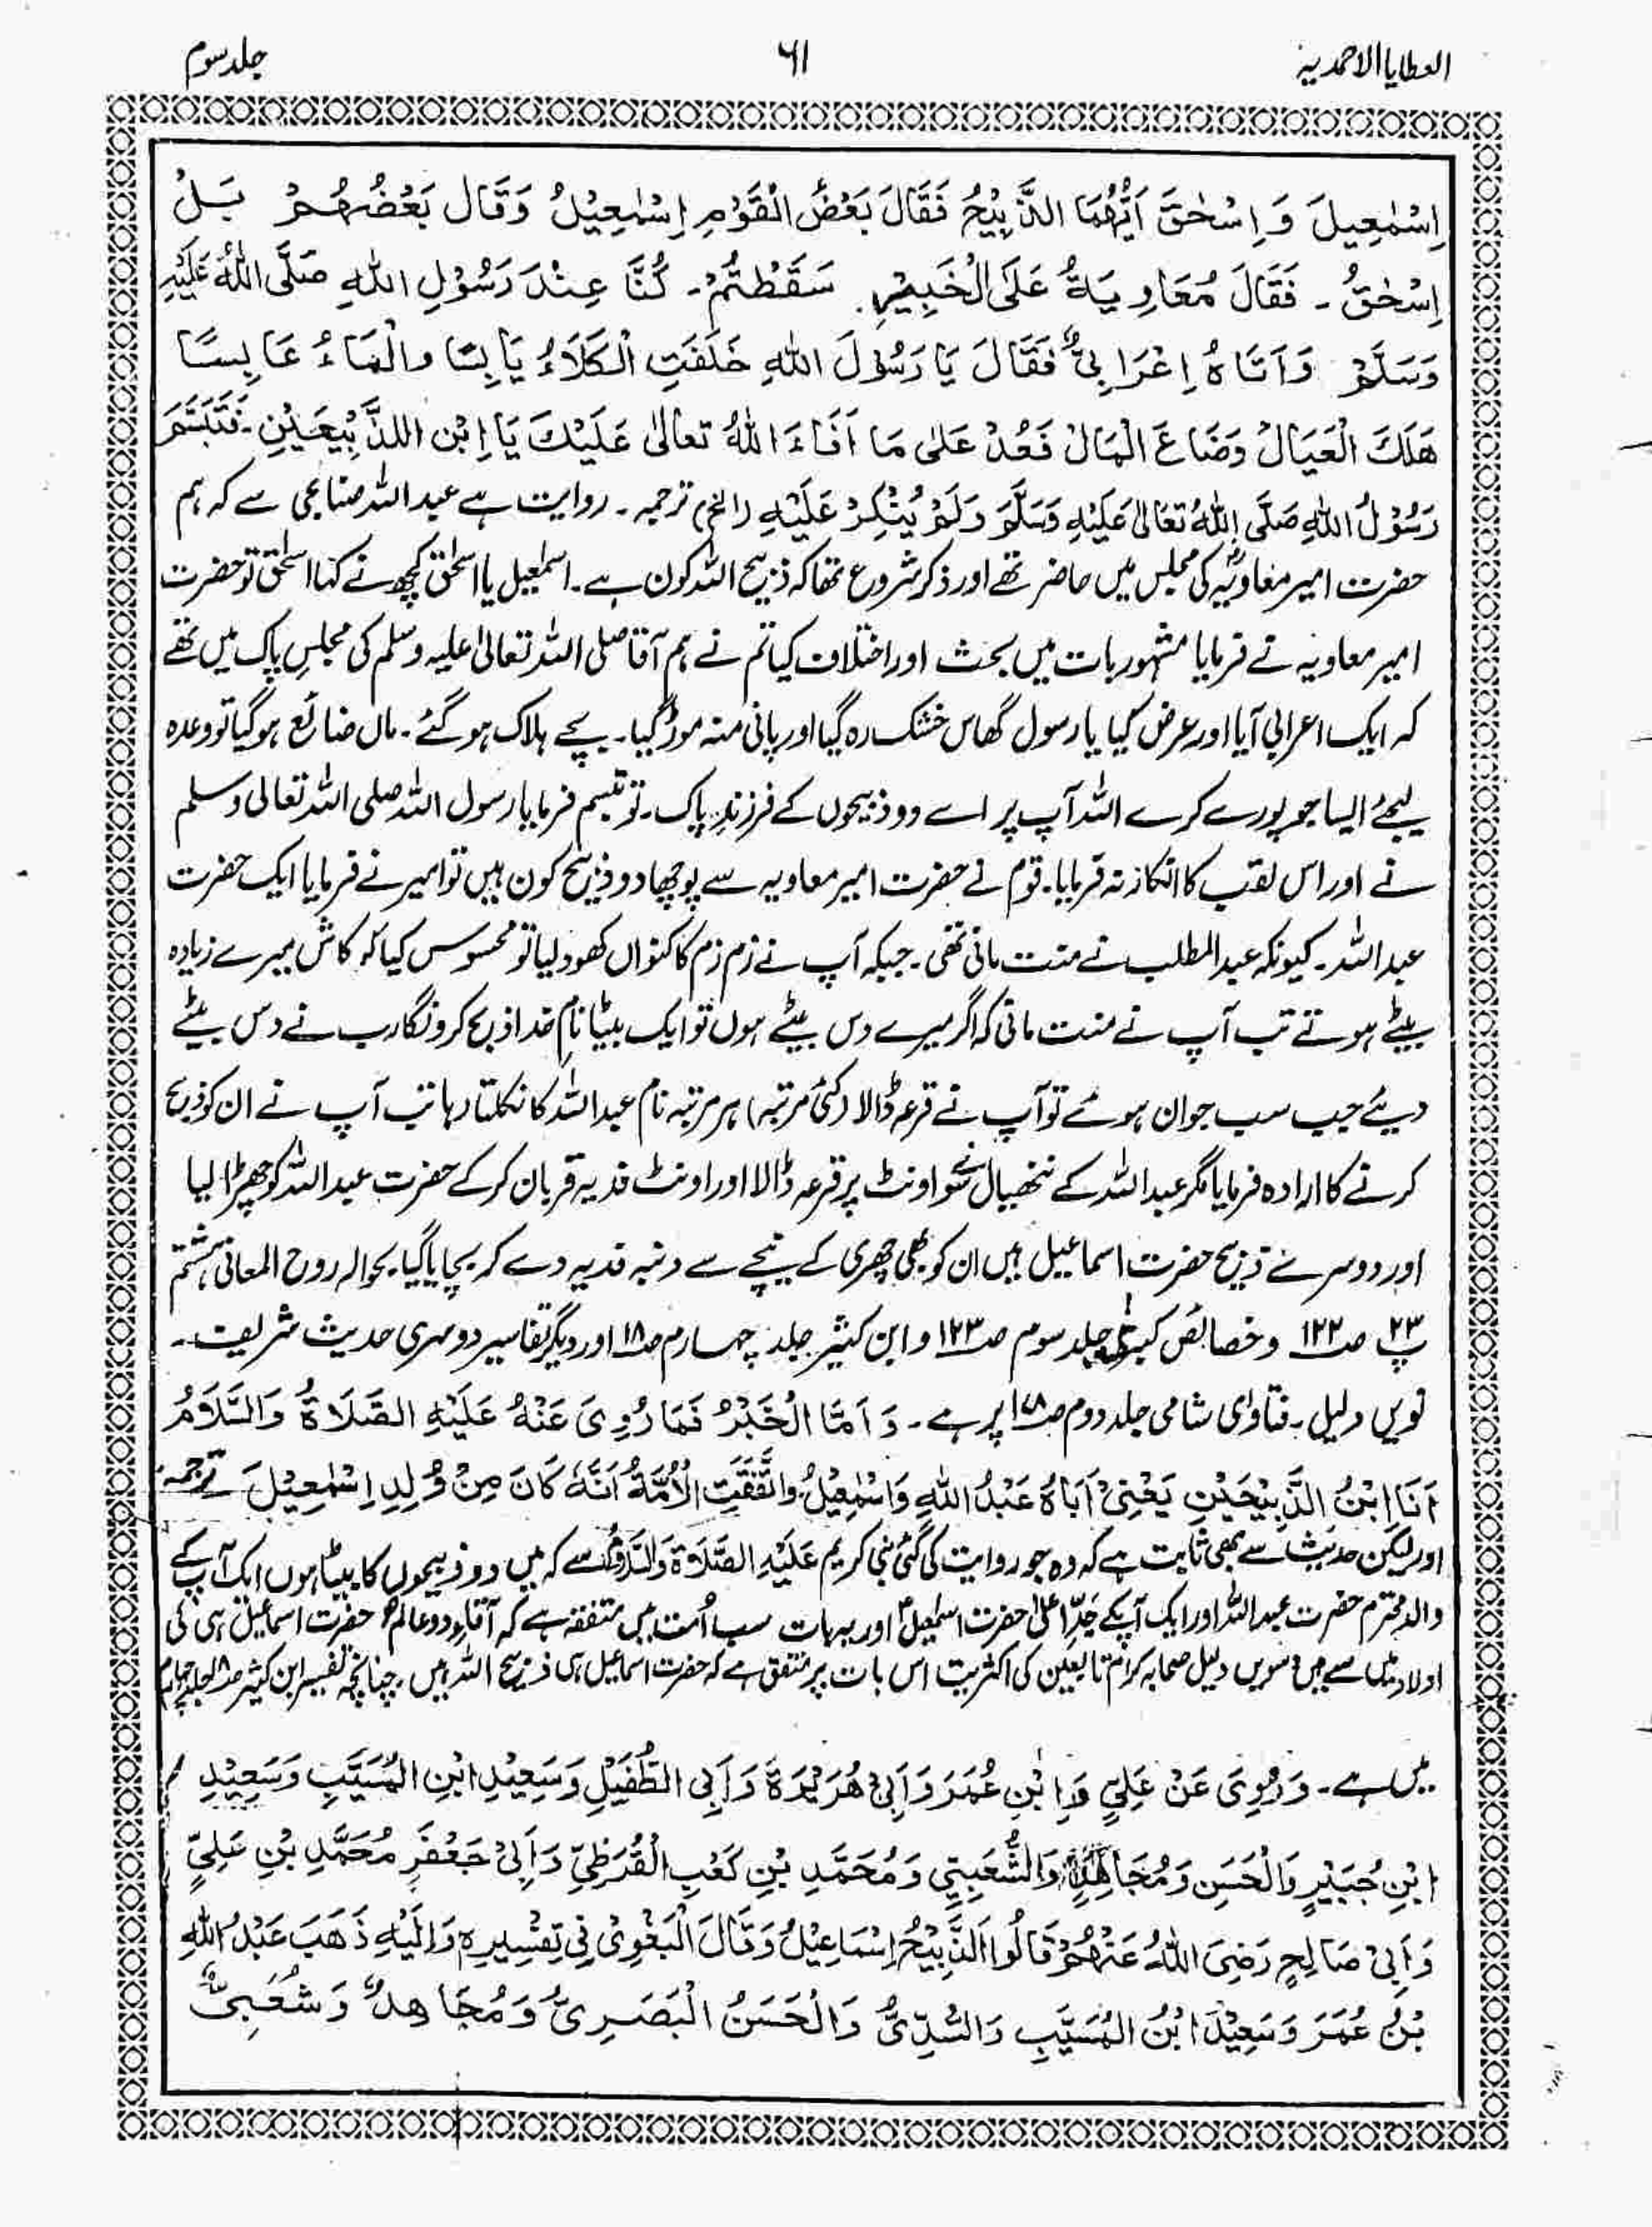 العطایا الاحمدیہ ۶۱ جلد سوم
اِسْمٰعِیلَ وَ اِسْحٰقَ اَیُّهُمَا الذَّبِیْحُ فَقَالَ بَعْضُ الْقَوْمِ اِسْمٰعِیْلُ وَقَالَ بَعْضُهُمْ بَلْ
اِسْحٰقُ ۔ فَقَالَ مُعَاوِیَةُ عَلَی الْخَبِیْرِ سَقَطْتُمْ ۔ کُنَّا عِنْدَ رَسُوْلِ اللهِ صَلَّی اللهُ عَلَیْهِ
وَسَلَّمْ وَاَتَاهُ اِعْرَابِیٌّ فَقَالَ یَا رَسُوْلَ اللهِ خَلَفَتِ الْکَلَاءُ یَابِسًا والْمَاءُ عَابِسًا
هَلَکَ الْعَیَالْ وَضَاعَ الْمَالْ فَعُدْ عَلٰی مَا اَفَاءَ اللهُ تعالیٰ عَلَیْکَ یَا اِبْن الذَّبِیْحَیْنِ ۔ فَتَبَسَّمَ
رَسُوْلُ اللهِ صَلَّی اللهُ تعَالیٰ عَلَیْهِ وَسَلَّمَ وَلَمْ یُنْکِرْ عَلَیْهِ (الخ) ترجمہ ۔ روایت ہے عبد اللہ صنابحی سے کہ ہم
حضرت امیر معاویہؓ کی مجلس میں حاضر تھے اور ذکر شروع تھا کہ ذبیح اللہ کون ہے ۔ اسمٰعیل یا اسحٰق کچھ نے کہا اسحٰق تو حضرت
امیر معاویہ نے فرمایا مشہور بات میں بحث اور اختلاف کیا تم نے ہم آقا صلی اللہ تعالیٰ علیہ وسلم کی مجلسِ پاک میں تھے
کہ ایک اعرابی آیا اور عرض کیا یا رسول گھاس خشک رہ گیا اور پانی منہ موڑ گیا ۔ بچے ہلاک ہو گئے ۔ مال ضائع ہو گیا تو وعدہ
لیجئے ایسا جو پورے کرے اللہ آپ پر اے دو ذبیحوں کے فرزندِ پاک ۔ تو تبسم فرمایا رسول اللہ صلی اللہ تعالی وسلم
نے اور اس لقب کا انکار نہ فرمایا ۔ قوم نے حضرت امیر معاویہ سے پوچھا دو ذبیح کون ہیں تو امیر نے فرمایا ایک حضرت
عبد اللہ ۔ کیونکہ عبد المطلب نے منت مانی تھی ۔ جبکہ آپ نے زم زم کا کنواں کھود لیا تو محسوس کیا کہ کاش میرے زیادہ
بیٹے ہوتے تب آپ نے منت مانی کہ اگر میرے دس بیٹے ہوں تو ایک بیٹا نامِ خدا ذبح کرونگا رب نے دس بیٹے
دیئے جب سب جوان ہوئے تو آپ نے قرعہ ڈالا (کئی مرتبہ) ہر مرتبہ نام عبد اللہ کا نکلتا رہا تب آپ نے ان کو ذبح
کرنے کا ارادہ فرمایا مگر عبد اللہ کے ننھیال نے سو اونٹ پر قرعہ ڈالا اور اونٹ فدیہ قربان کر کے حضرت عبد اللہ کو چھڑا لیا
اور دوسرے ذبیح حضرت اسماعیل ہیں ان کو بھی چھری کے نیچے سے دنبہ فدیہ دے کر بچایا گیا بحوالہ روح المعانی ہشتم
پ ۲۳ صـ ۱۲۲ و خصائص کبریٰ جلد سوم صـ ۱۲۳ و ابن کثیر جلد چہارم صـ ۱۸ اور دیگر تفاسیر دوسری حدیث شریف ۔
نویں دلیل ۔ فتاوٰی شامی جلد دوم صـ پر ہے ۔ وَ اَمَّا الْخَبَرُ فَمَا رُوِیَ عَنْهُ عَلَیْهِ الصَّلَاةُ وَالسَّلَامُ
اَنَا اِبْنُ الذَّبِیْحَیْنِ یَعْنِیْ اَبَاهُ عَبْدُ اللهِ وَاِسْمٰعِیْلُ وَاتَّفَقَتِ الْاُمَّةُ اَنَّهُ کَانَ مِنْ وُلِدِ اِسْمٰعِیْلَ ترجمہ
اور لیکن حدیث سے بھی ثابت ہے کہ وہ جو روایت کی گئی نبی کریم عَلَیْهِ الصَّلَاوة وَالسَّلَامُ سے کہ میں دو ذبیحوں کا بیٹا ہوں ایک آپ کے
والد محترم حضرت عبد اللہ اور ایک آپکے جدِّ اعلیٰ حضرت اسمٰعیل اور یہ بات سب اُمت میں متفقہ ہے کہ آقاء دو عالم حضرت اسماعیل ہی کی
اولاد میں سے ہیں دسویں دلیل صحابہ کرام تابعین کی اکثریت اس بات پر متفق ہے کہ حضرت اسماعیل ہی ذبیح اللہ ہیں ۔ چنانچہ تفسیر ابن کثیر صـ ۱۸ جلد چہارم
میں ہے ۔ وَرُوِیَ عَنْ عَلِیٍّ وَابْنِ عُمَرَ وَاَبِیْ هُرَیْرَةَ وَاَبِی الطُّفَیْلِ وَسَعِیْدِ ابْنِ الْمُسَیَّبِ وَسَعِیْدِ
ابْنِ جُبَیْرٍ وَالْحَسَنِ وَمُجَاهِدٍ وَالشُّعَبِیِّ وَمُحَمَّدِ بْنِ کَعْبِ الْقُرَظِیِّ وَاَبِیْ جَعْفَرِ مُحَمَّدِ بْنِ عَلِیٍّ
وَاَبِیْ صَالِحٍ رَضِیَ اللهُ عَنْهُمْ قَالُوا اَلذَّبِیْحُ اِسْمَاعِیْلُ وَقَالَ الْبَغْوِیْ فِیْ تفْسِیرِہ وَاِلَیْهِ ذَهَبَ عَبْدُ اللهِ
بْنُ عُمَرَ وَسَعِیْدَ ابْنُ الْمُسَیَّبِ وَالسُّدِّیُّ وَالْحَسَنُ الْبَصَرِیُّ وَمُجَاهِدٌ وَشُعَبِیٌّ